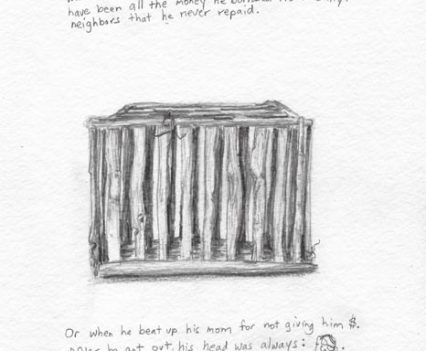 have been all the money he borrowed
neighbors that he never repaid.
Or when he beat up his mom for not giving him $.
he got out, his head was always: